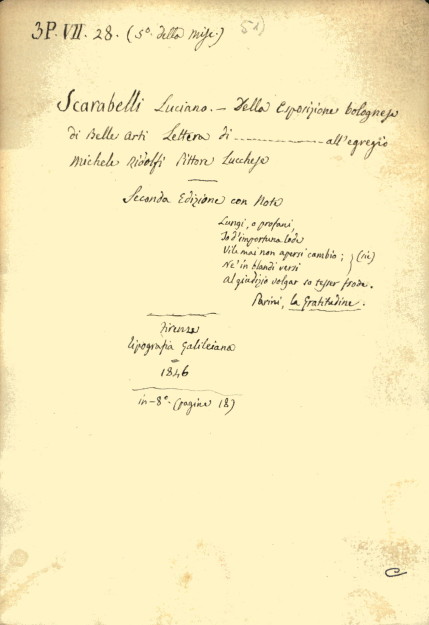 3P. VII. 28. (5º. della Misc.)
5a)
Scarabelli Luciano. – Della Esposizione bolognese
di Belle Arti Lettera di ............ all'egregio
Michele Ridolfi Pittore Lucchese
Seconda Edizione con Note
Lungi, o profani,
Io d'importuna lode
Vile mai non apersi cambio; } (sic)
Nè in blandi versi
Al giudizio volgar so tesser frode.
Parini, la Gratitudine.
Firenze
Tipografia Galileiana
1846
in-8º. (pagine 18)
C